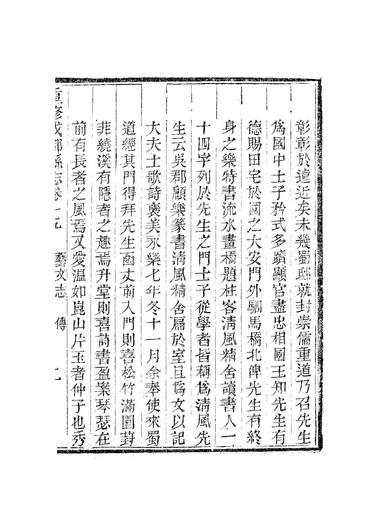 彰彰於遠近矣未幾蜀邸就封崇儒重道乃召先生
為國中士子矜式多躋顯官盡忠相國王知先生有
德賜田宅於國之大安門外駟馬橋北俾先生有終
身之樂特書流水畫橋題柱客清風精舍讀書人一
十四字列於先生之門士子從學者皆稱為清風先
生云吳郡顧樂篆書清風精舍扁於室且為文以記
大夫士歌詩褒美永樂七年冬十一月余奉使來蜀
道經其門得拜先生函丈前入門則喜松竹滿園葑
菲繞溪有隱者之趣焉升堂則喜詩書盈案琴瑟在
前有長者之風焉又愛溫如崑山片玉者仲子也秀
重修成都縣志卷十五 藝文志 傳